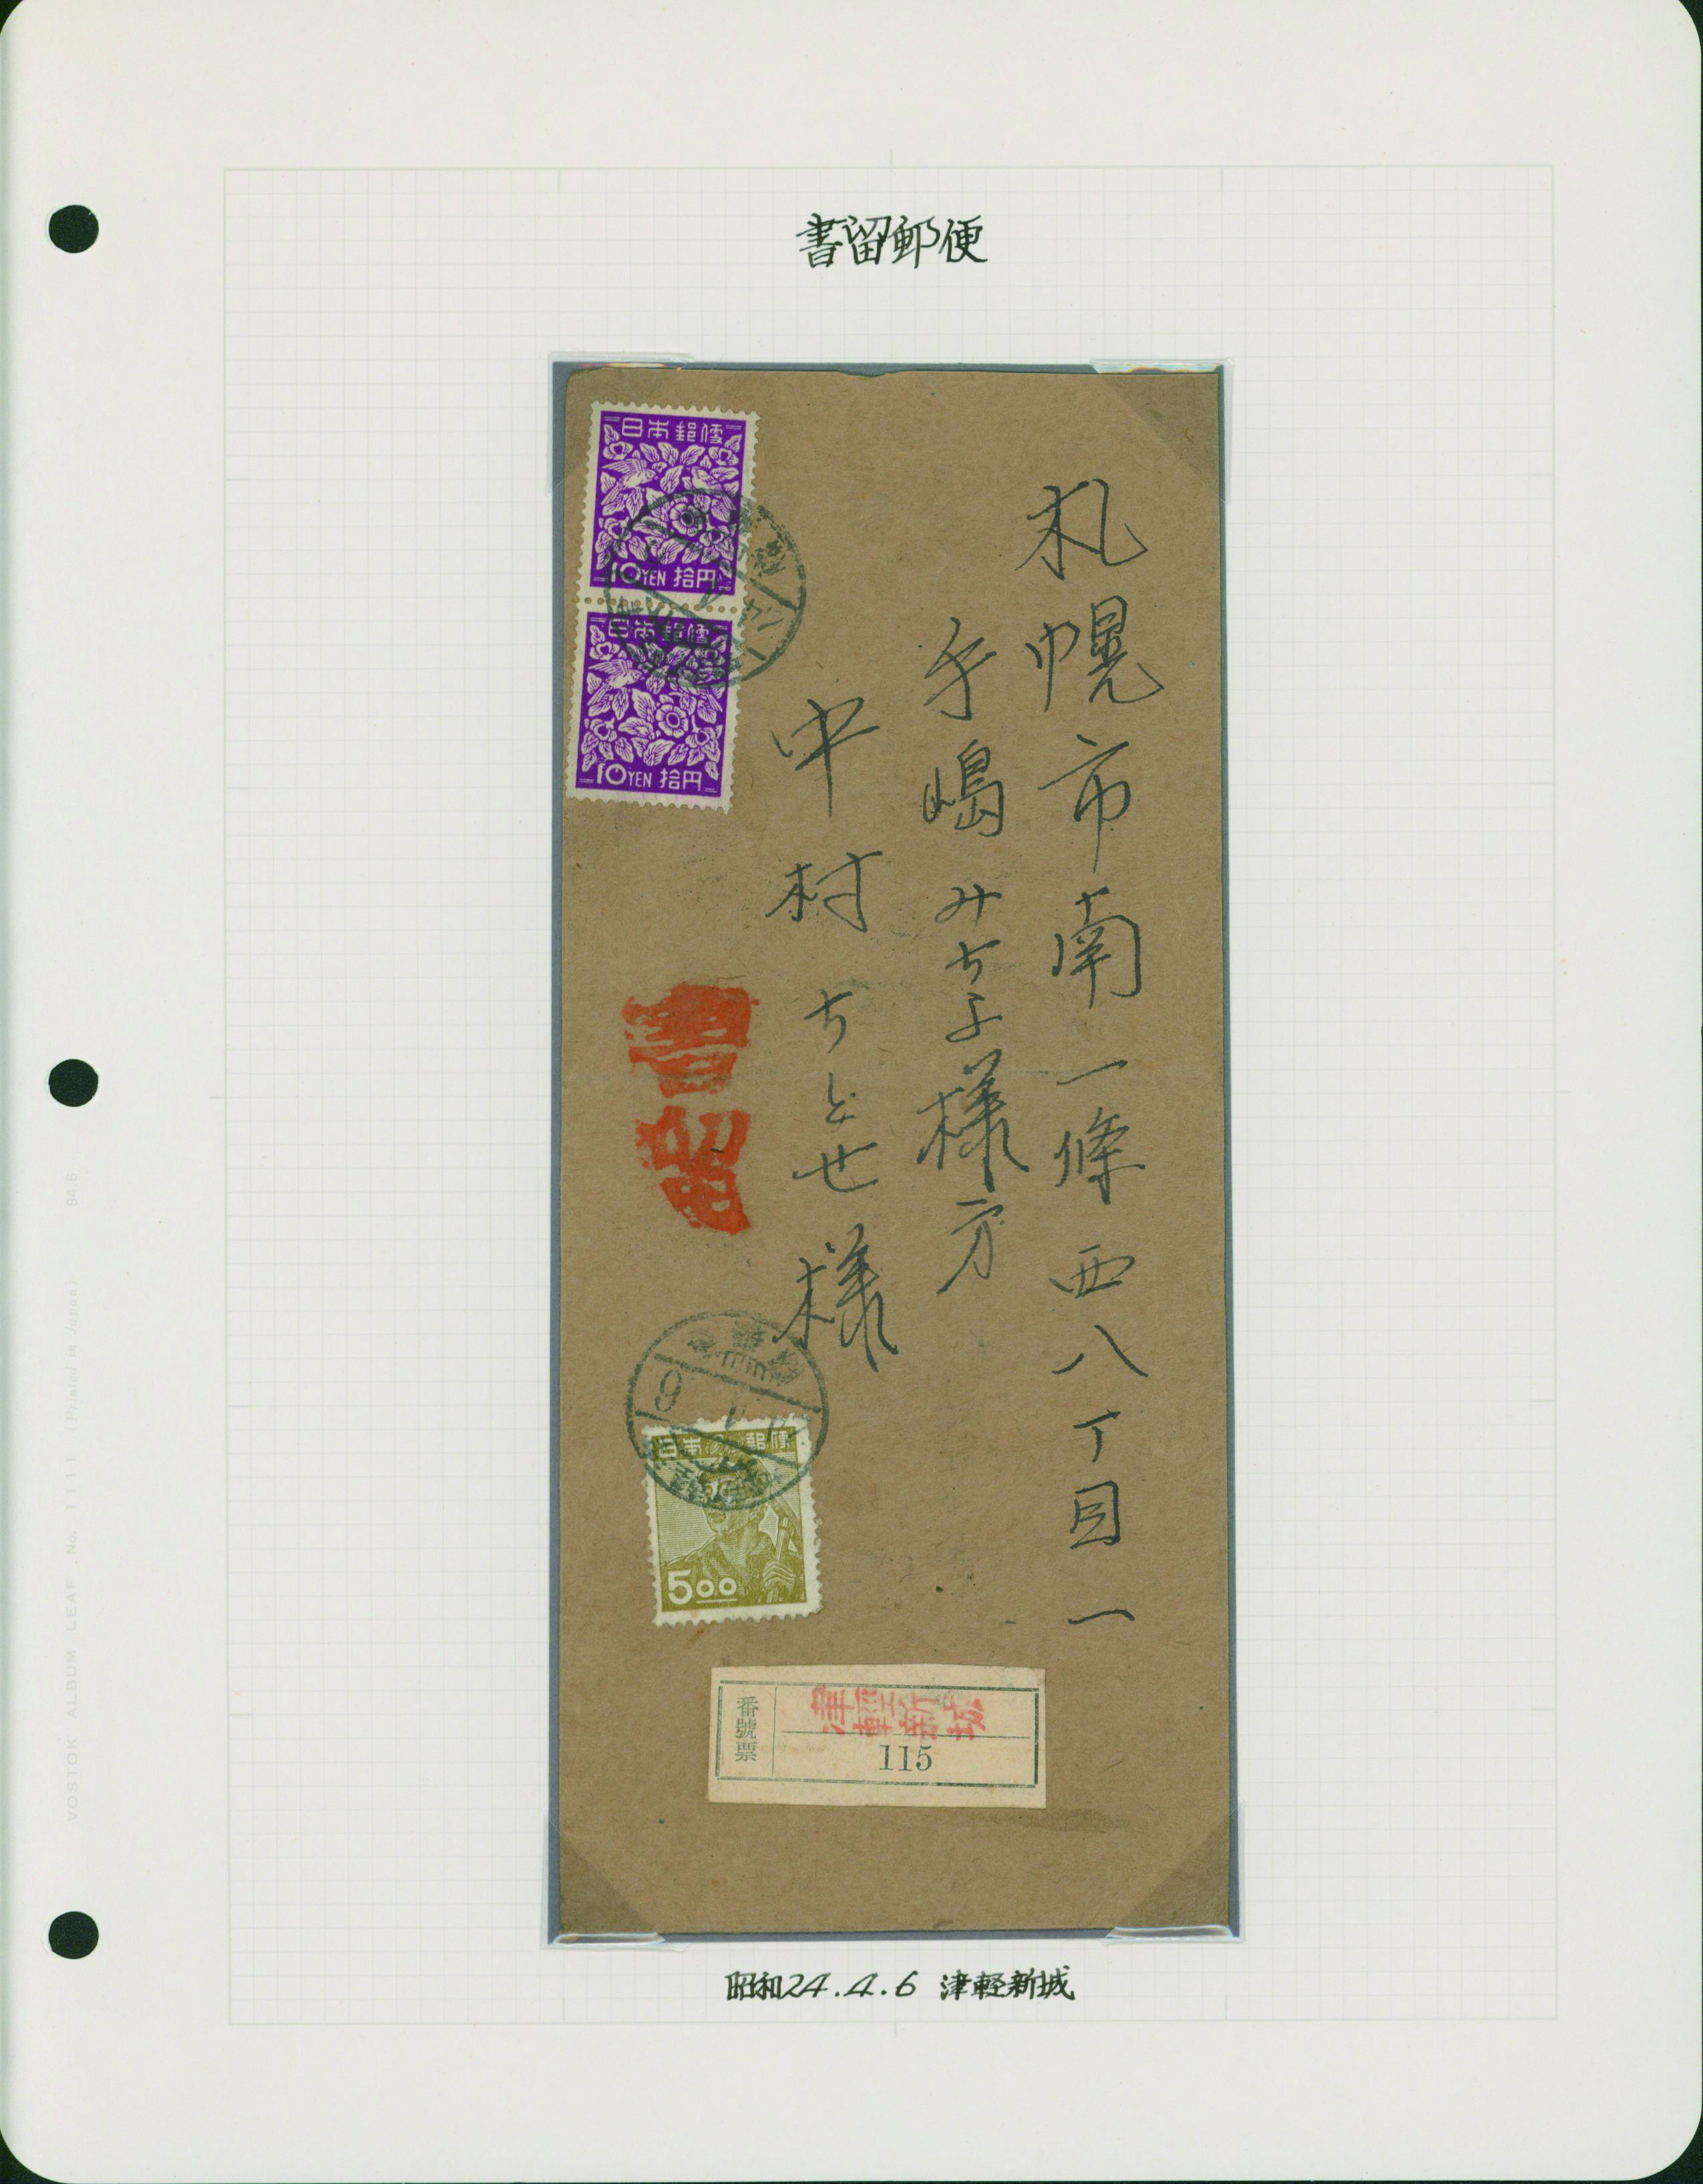 書留郵便
日本郵便
10YEN 拾円
日本郵便
10YEN 拾円
札幌市南一條西八丁目一
手嶋みちよ様方
中村ちとせ様
書留
9
日本郵便
500
番號票
津軽新城
115
昭和24.4.6 津軽新城
VOSTOK ALBUM LEAF. No. 1111 (Printed in Japan) 94.6